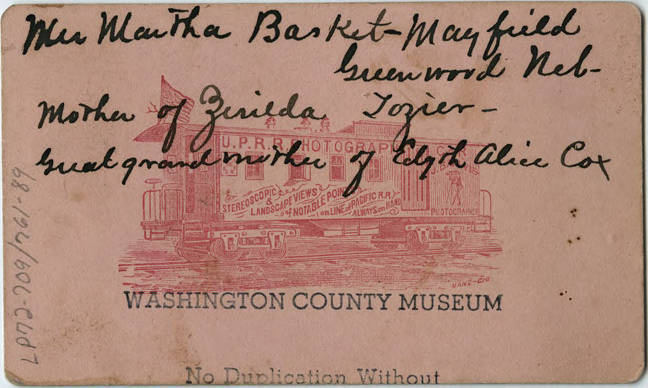 Mrs Martha Basket-Mayfield
Greenwood Neb-
Mother of Zerilda Tozier-
Great grandmother of Edyth Alice Cox
U.P.R.R. PHOTOGRAPH CAR
J.B. SILVIS
STEREOSCOPIC
&
LANDSCAPE VIEWS
of NOTABLE POINTS
on LINE of PACIFIC R.R.
ALWAYS on HAND
PHOTOGRAPHER
WASHINGTON COUNTY MUSEUM
No Duplication Without
LP72-709/1761-89